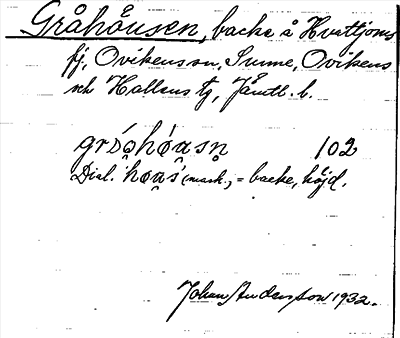 Gråhåusen, backe å Hvattjoms
fj., Ovikens sn, Sunne, Ovikens
och Hallens tg, Jämtl. l.
grŏ́ₐhǿasn̥ 102
Dial. hǿas (mask.) = backe, höjd.
Johan Anderson 1932.